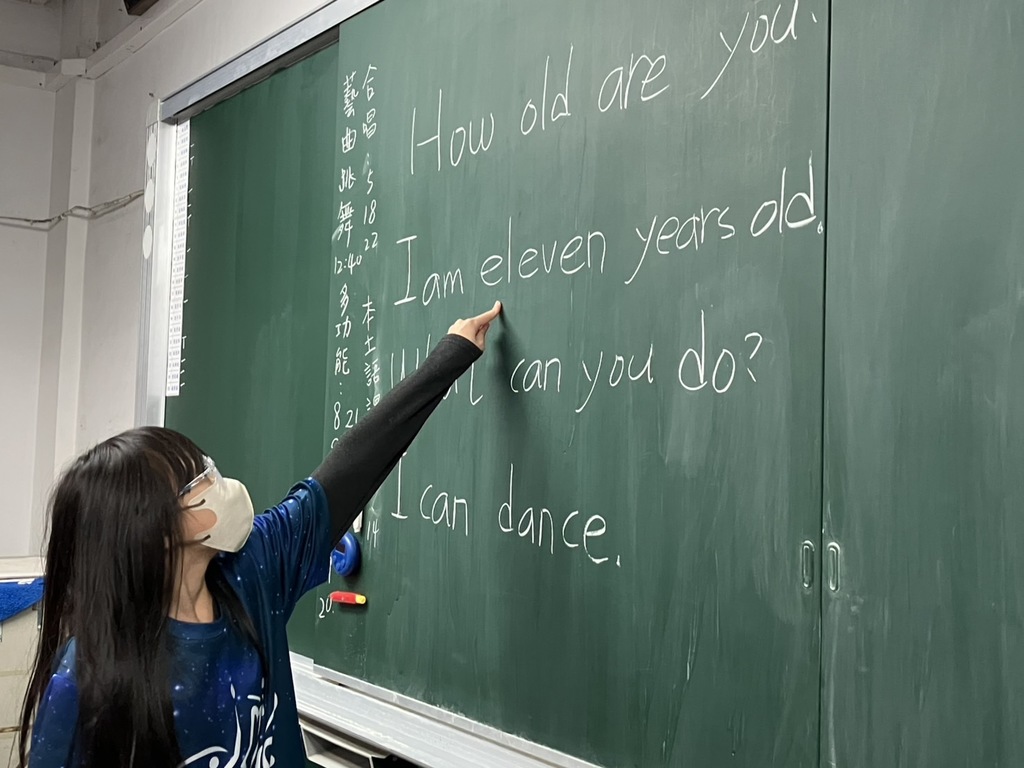 How old are you.
I am eleven years old.
can you do?
I can dance.
合唱:5 18 22 本土語
藝曲跳舞 12:40 多功能:8 21
14
20